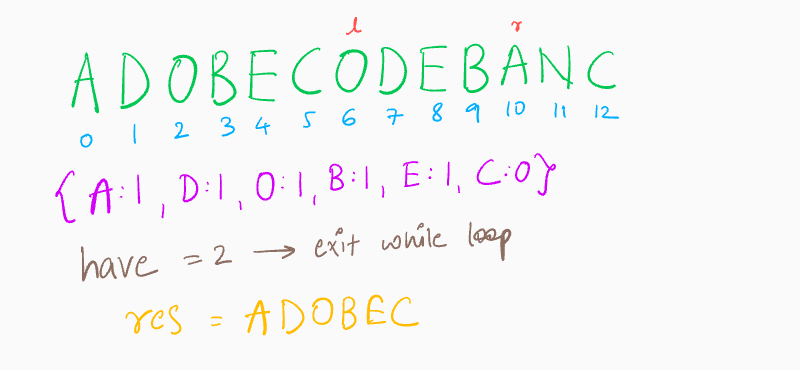 l r
A D O B E C O D E B A N C
0 1 2 3 4 5 6 7 8 9 10 11 12
{A:1, D:1, O:1, B:1, E:1, C:0}
have = 2 → exit while loop
res = ADOBEC